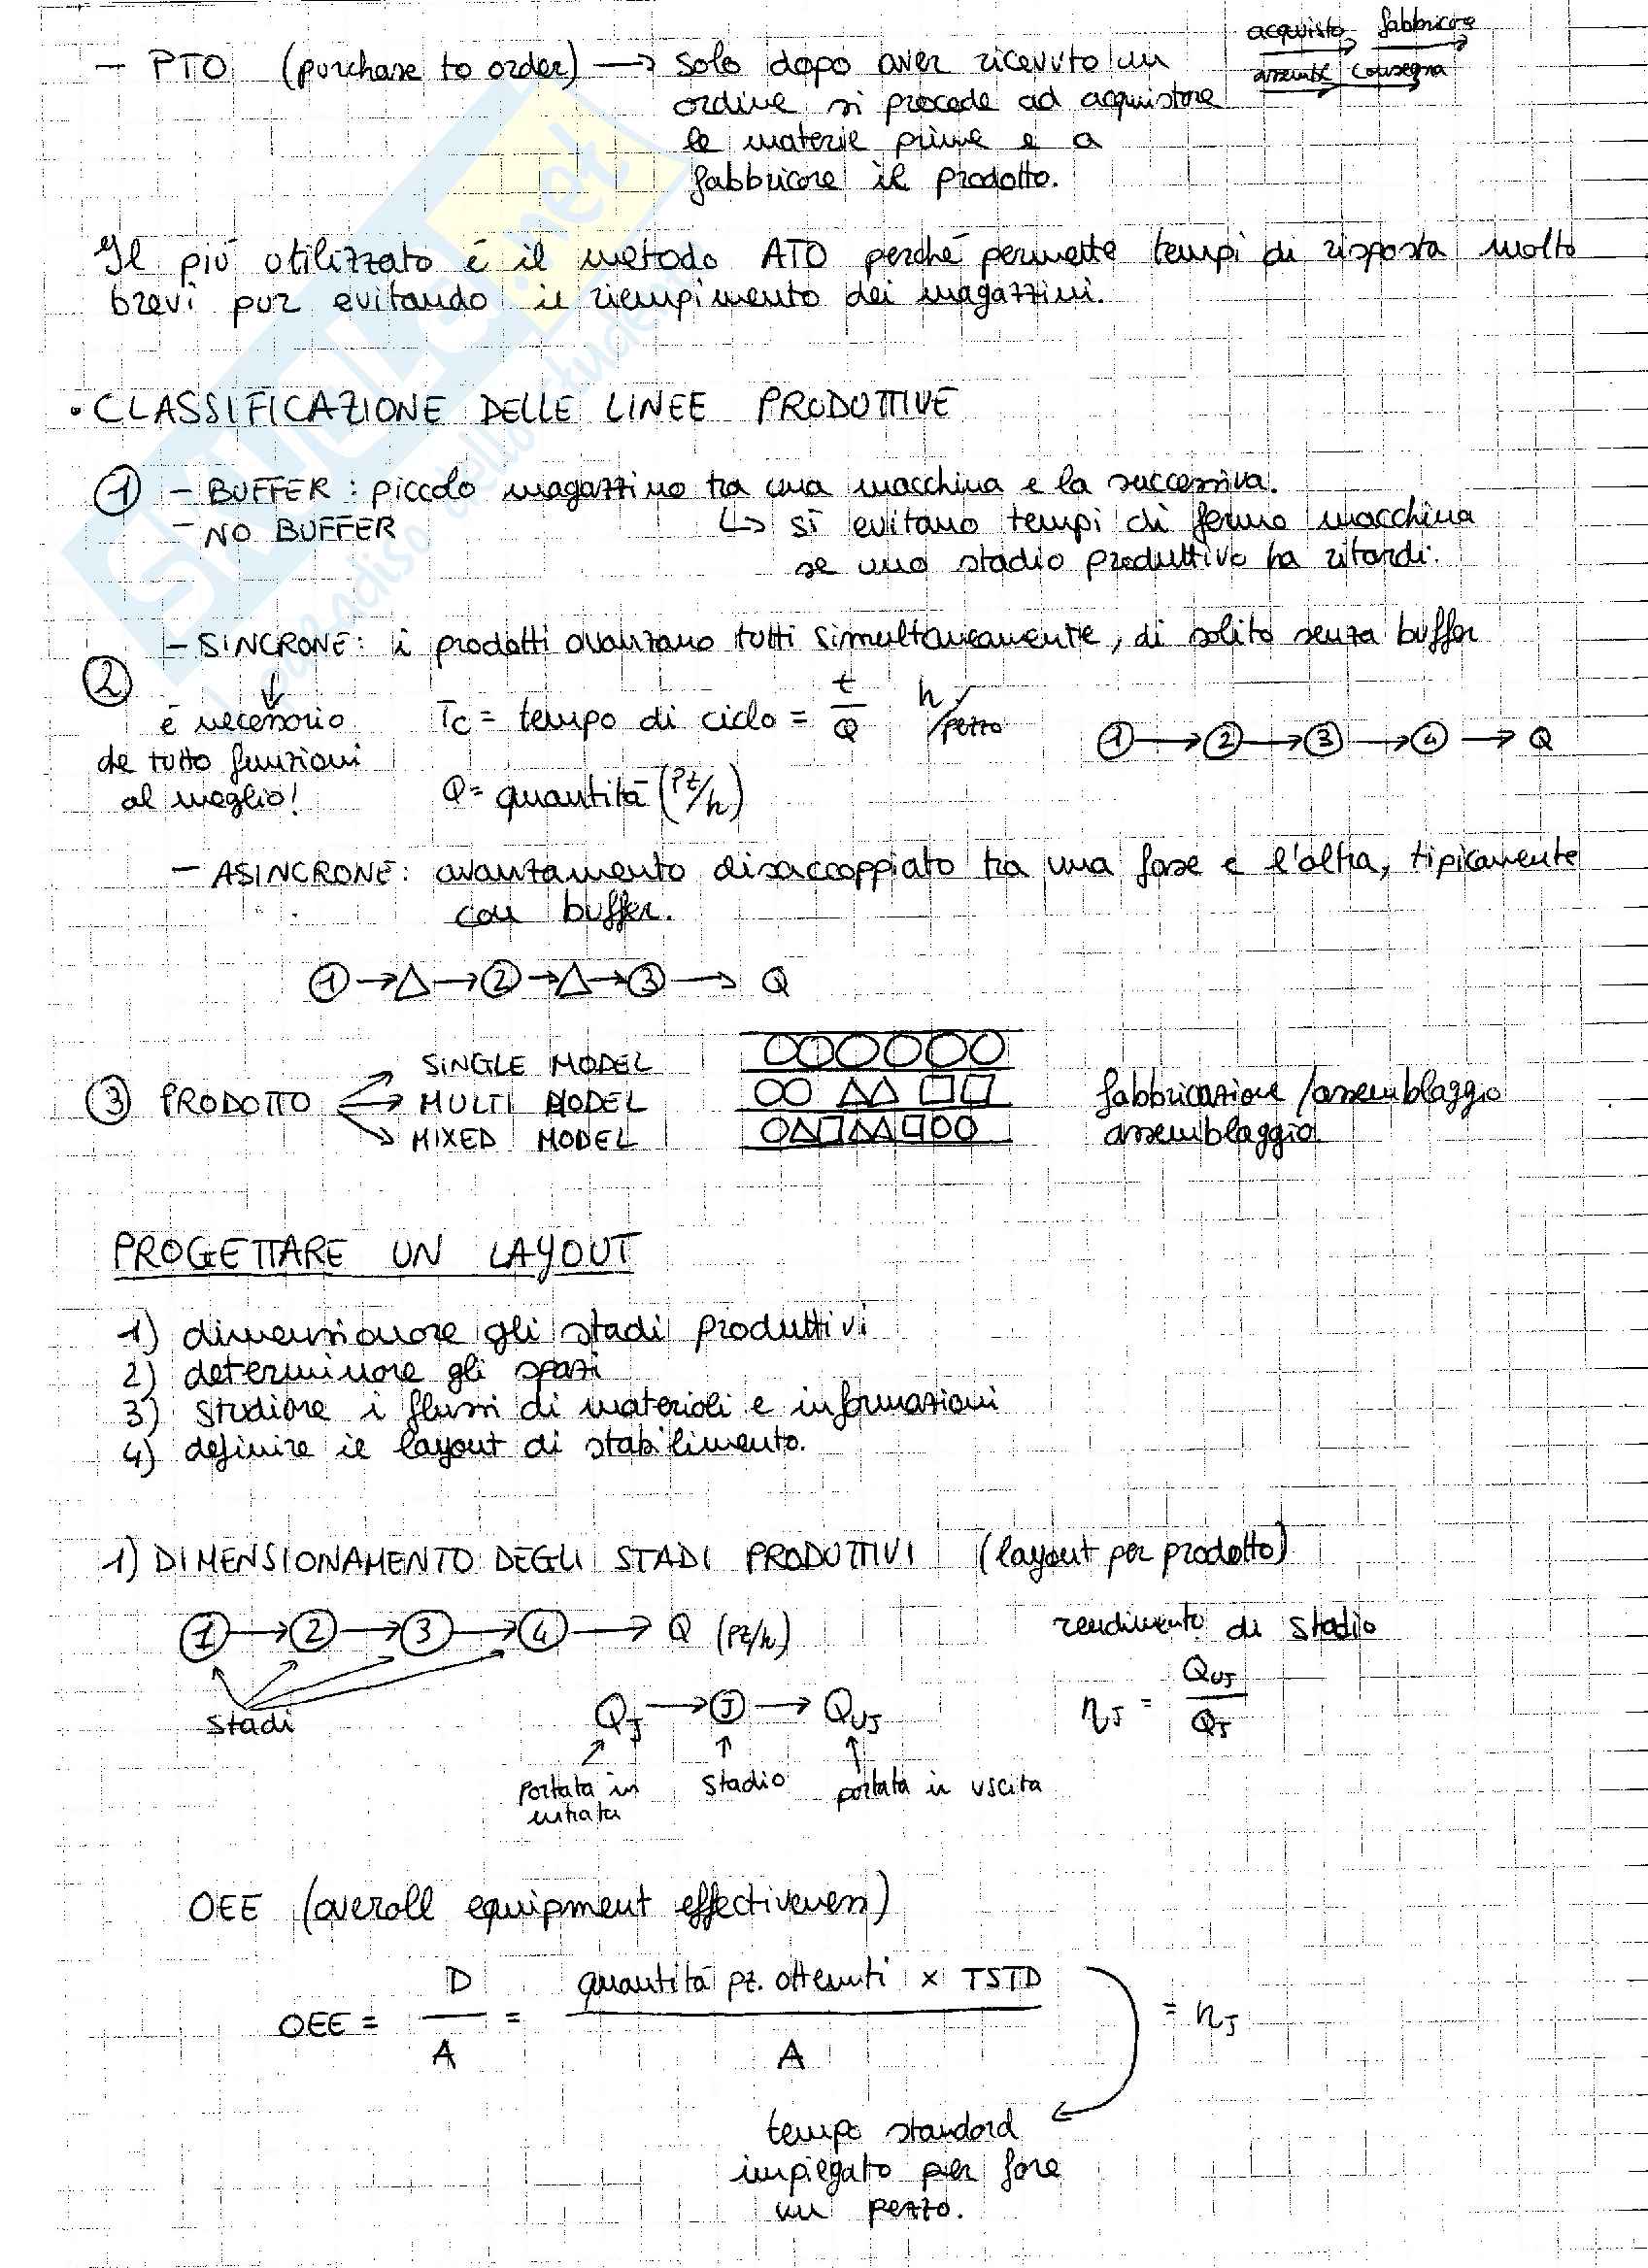 - PTO (purchase to order) → solo dopo aver ricevuto un
ordine si procede ad acquistare
le materie prime e a
fabbricare il prodotto.
acquisto fabbricare
assembl consegna
Il più utilizzato è il metodo ATO perché permette tempi di risposta molto
brevi pur evitando il riempimento dei magazzini.
• CLASSIFICAZIONE DELLE LINEE PRODUTTIVE
① - BUFFER: piccolo magazzino tra una macchina e la successiva.
- NO BUFFER ↳ si evitano tempi di fermo macchina
se uno stadio produttivo ha ritardi.
② - SINCRONE: i prodotti avanzano tutti simultaneamente, di solito senza buffer
↓
è necessario
che tutto funzioni
al meglio!
Tc = tempo di ciclo = t/Q h/pezzo
① → ② → ③ → ④ → Q
Q = quantità (Pz/h)
- ASINCRONE: avanzamento disaccoppiato tra una fase e l'altra, tipicamente
con buffer.
① → △ → ② → △ → ③ → Q
③ PRODOTTO
SINGLE MODEL
MULTI MODEL fabbricazione/assemblaggio
MIXED MODEL assemblaggio
PROGETTARE UN LAYOUT
1) dimensionare gli stadi produttivi
2) determinare gli spazi
3) studiare i flussi di materiali e informazioni
4) definire il layout di stabilimento.
1) DIMENSIONAMENTO DEGLI STADI PRODUTTIVI (layout per prodotto)
① → ② → ③ → ④ → Q (Pz/h)
stadi
rendimento di stadio
ηJ = QUJ/QJ
QJ → Ⓙ → QUJ
portata in
entrata
stadio
portata in uscita
OEE (overall equipment effectiveness)
OEE = D/A = quantità pz. ottenuti x TSTD/A = ηJ
tempo standard
impiegato per fare
un pezzo.